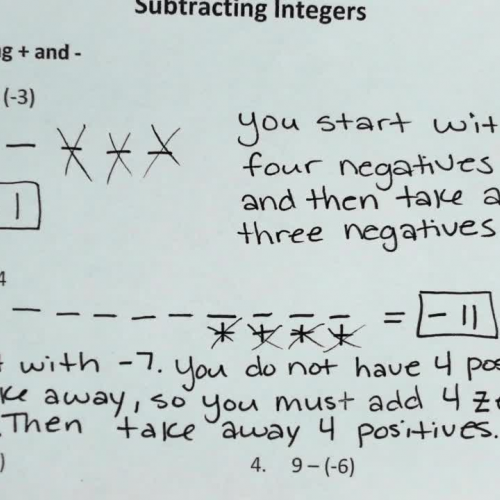 Subtracting Integers
ng + and -
(-3)
you start wit
four negatives
and then take a
three negatives
1
4
= - 11
t with -7. You do not have 4 pos
ke away, so you must add 4 ze
. Then take away 4 positives.
)
4. 9 – (-6)